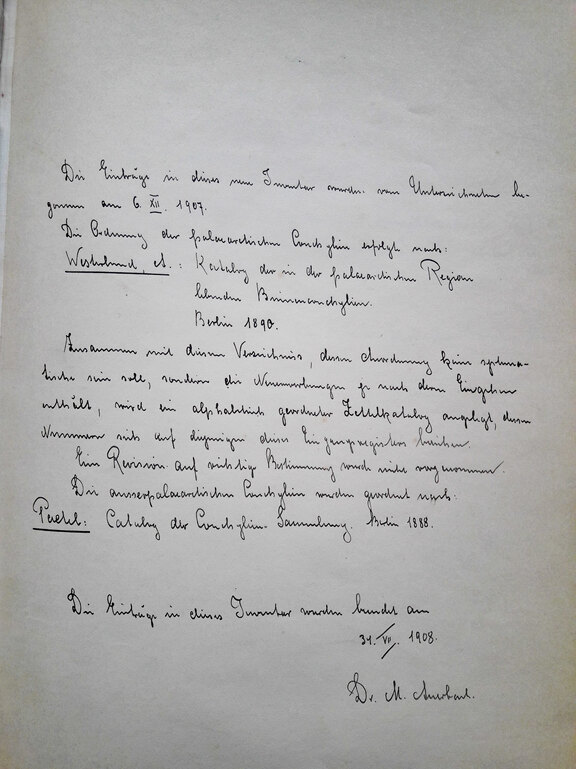 Die Einträge in dieses neue Inventar wurden vom Unterzeichneten be-
gonnen am 6. XII. 1907.
Die Ordnung der palaearctischen Conchylien erfolgte nach:
Westerlund, A.: Katalog der in der palaearctischen Region
lebenden Binnenconchylien.
Berlin 1890.
Zusammen mit diesem Verzeichniss, dessen Anordnung keine systema-
tische sein soll, sondern die Neuerwerbungen je nach dem Eingehen
enthält, wird ein alphabetisch geordneter Zettelkatalog angelegt, dessen
Nummern sich auf diejenigen dieses Eingangsregisters beziehen.
Eine Revision auf richtige Bestimmung wurde nicht vorgenommen.
Die ausserpalaearctischen Conchylien wurden geordnet nach:
Paetel: Catalog der Conchylien-Sammlung. Berlin 1888.
Die Einträge in dieses Inventar wurden beendet am
31. VII. 1908.
Dr. M. Auerbach.